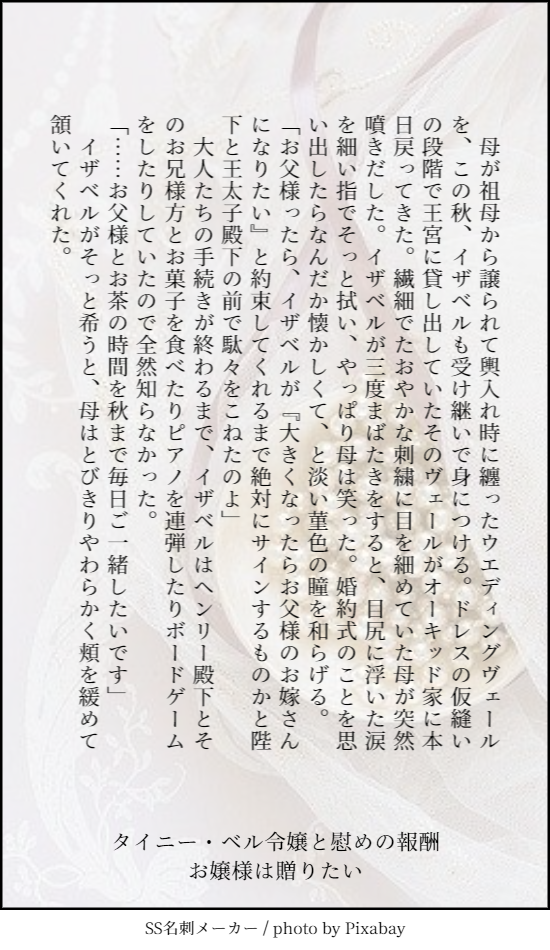 母が祖母から譲られて輿入れ時に纏ったウエディングヴェール
を、この秋、イザベルも受け継いで身につける。ドレスの仮縫い
の段階で王宮に貸し出していたそのヴェールがオーキッド家に本
日戻ってきた。繊細でたおやかな刺繍に目を細めていた母が突然
噴きだした。イザベルが三度まばたきをすると、目尻に浮いた涙
を細い指でそっと拭い、やっぱり母は笑った。婚約式のことを思
い出したらなんだか懐かしくて、と淡い菫色の瞳を和らげる。
「お父様ったら、イザベルが『大きくなったらお父様のお嫁さん
になりたい』と約束してくれるまで絶対にサインするものかと陛
下と王太子殿下の前で駄々をこねたのよ」
　大人たちの手続きが終わるまで、イザベルはヘンリー殿下とそ
のお兄様方とお菓子を食べたりピアノを連弾したりボードゲーム
をしたりしていたので全然知らなかった。
「……お父様とお茶の時間を秋まで毎日ご一緒したいです」
　イザベルがそっと希うと、母はとびきりやわらかく頬を緩めて
頷いてくれた。
タイニー・ベル令嬢と慰めの報酬
お嬢様は贈りたい
SS名刺メーカー / photo by Pixabay